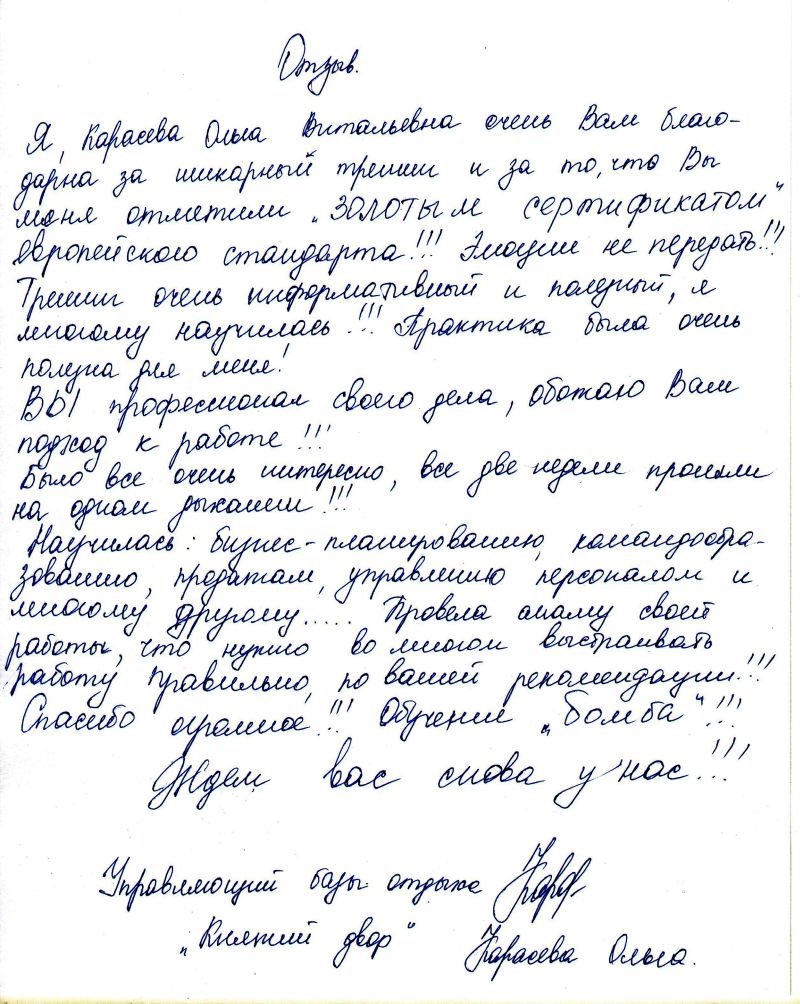 Отзыв.
Я, Карасева Ольга Витальевна очень Вам благо-
дарна за шикарный тренинг и за то, что Вы
меня отметили „Золотым сертификатом"
европейского стандарта!!! Эмоции не передать!!!
Тренинг очень информативный и полезный, я
многому научилась!!! Практика была очень
полезна для меня!
ВЫ профессионал своего дела, обожаю Ваш
подход к работе!!!
Было все очень интересно, все две недели прошли
на одном дыхании!!!
Научилась: бизнес-планированию, командообра-
зованию, продажам, управлению персоналом и
многому другому..... Провела анализ своей
работы, что нужно во многом выстраивать
работу правильно, по вашей рекомендации!!!
Спасибо огромное!!! Обучение „бомба"!!!
Ждем вас снова у нас!!!
Управляющий базы отдыха
„Княжий двор" Карасева Ольга.